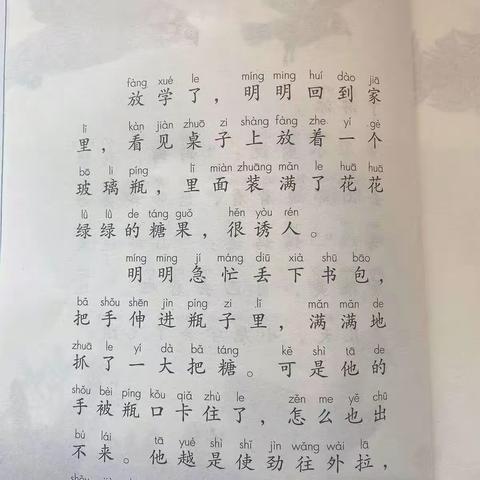 fàng xué le míng ming huí dào jiā
放学了，明明回到家
lǐ kàn jiàn zhuō zi shàng fàng zhe yí gè
里，看见桌子上放着一个
bō li píng lǐ miàn zhuāng mǎn le huā huā
玻璃瓶，里面装满了花花
lǜ lǜ de táng guǒ hěn yòu rén
绿绿的糖果，很诱人。
míng ming jí máng diū xià shū bāo
明明急忙丢下书包，
bǎ shǒu shēn jìn píng zi lǐ mǎn mǎn de
把手伸进瓶子里，满满地
zhuā le yí dà bǎ táng kě shì tā de
抓了一大把糖。可是他的
shǒu bèi píng kǒu qiǎ zhù le zěn me yě chū
手被瓶口卡住了，怎么也出
bù lái tā yuè shì shǐ jìn wǎng wài lā
不来。他越是使劲往外拉，